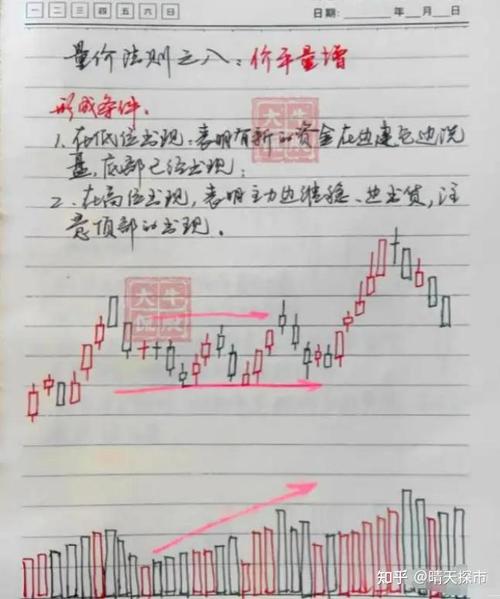 一 二 三 四 五 六 日 日期: 年 月 日
量价法则之八:价平量增
形成条件:
1、在低位出现,表明有新的资金在边建仓边洗
盘,底部已经出现;
2、在高位出现,表明主力边维稳、边出货,注
意顶部的出现。
大牛
大牛
侃股
知乎 @晴天探市